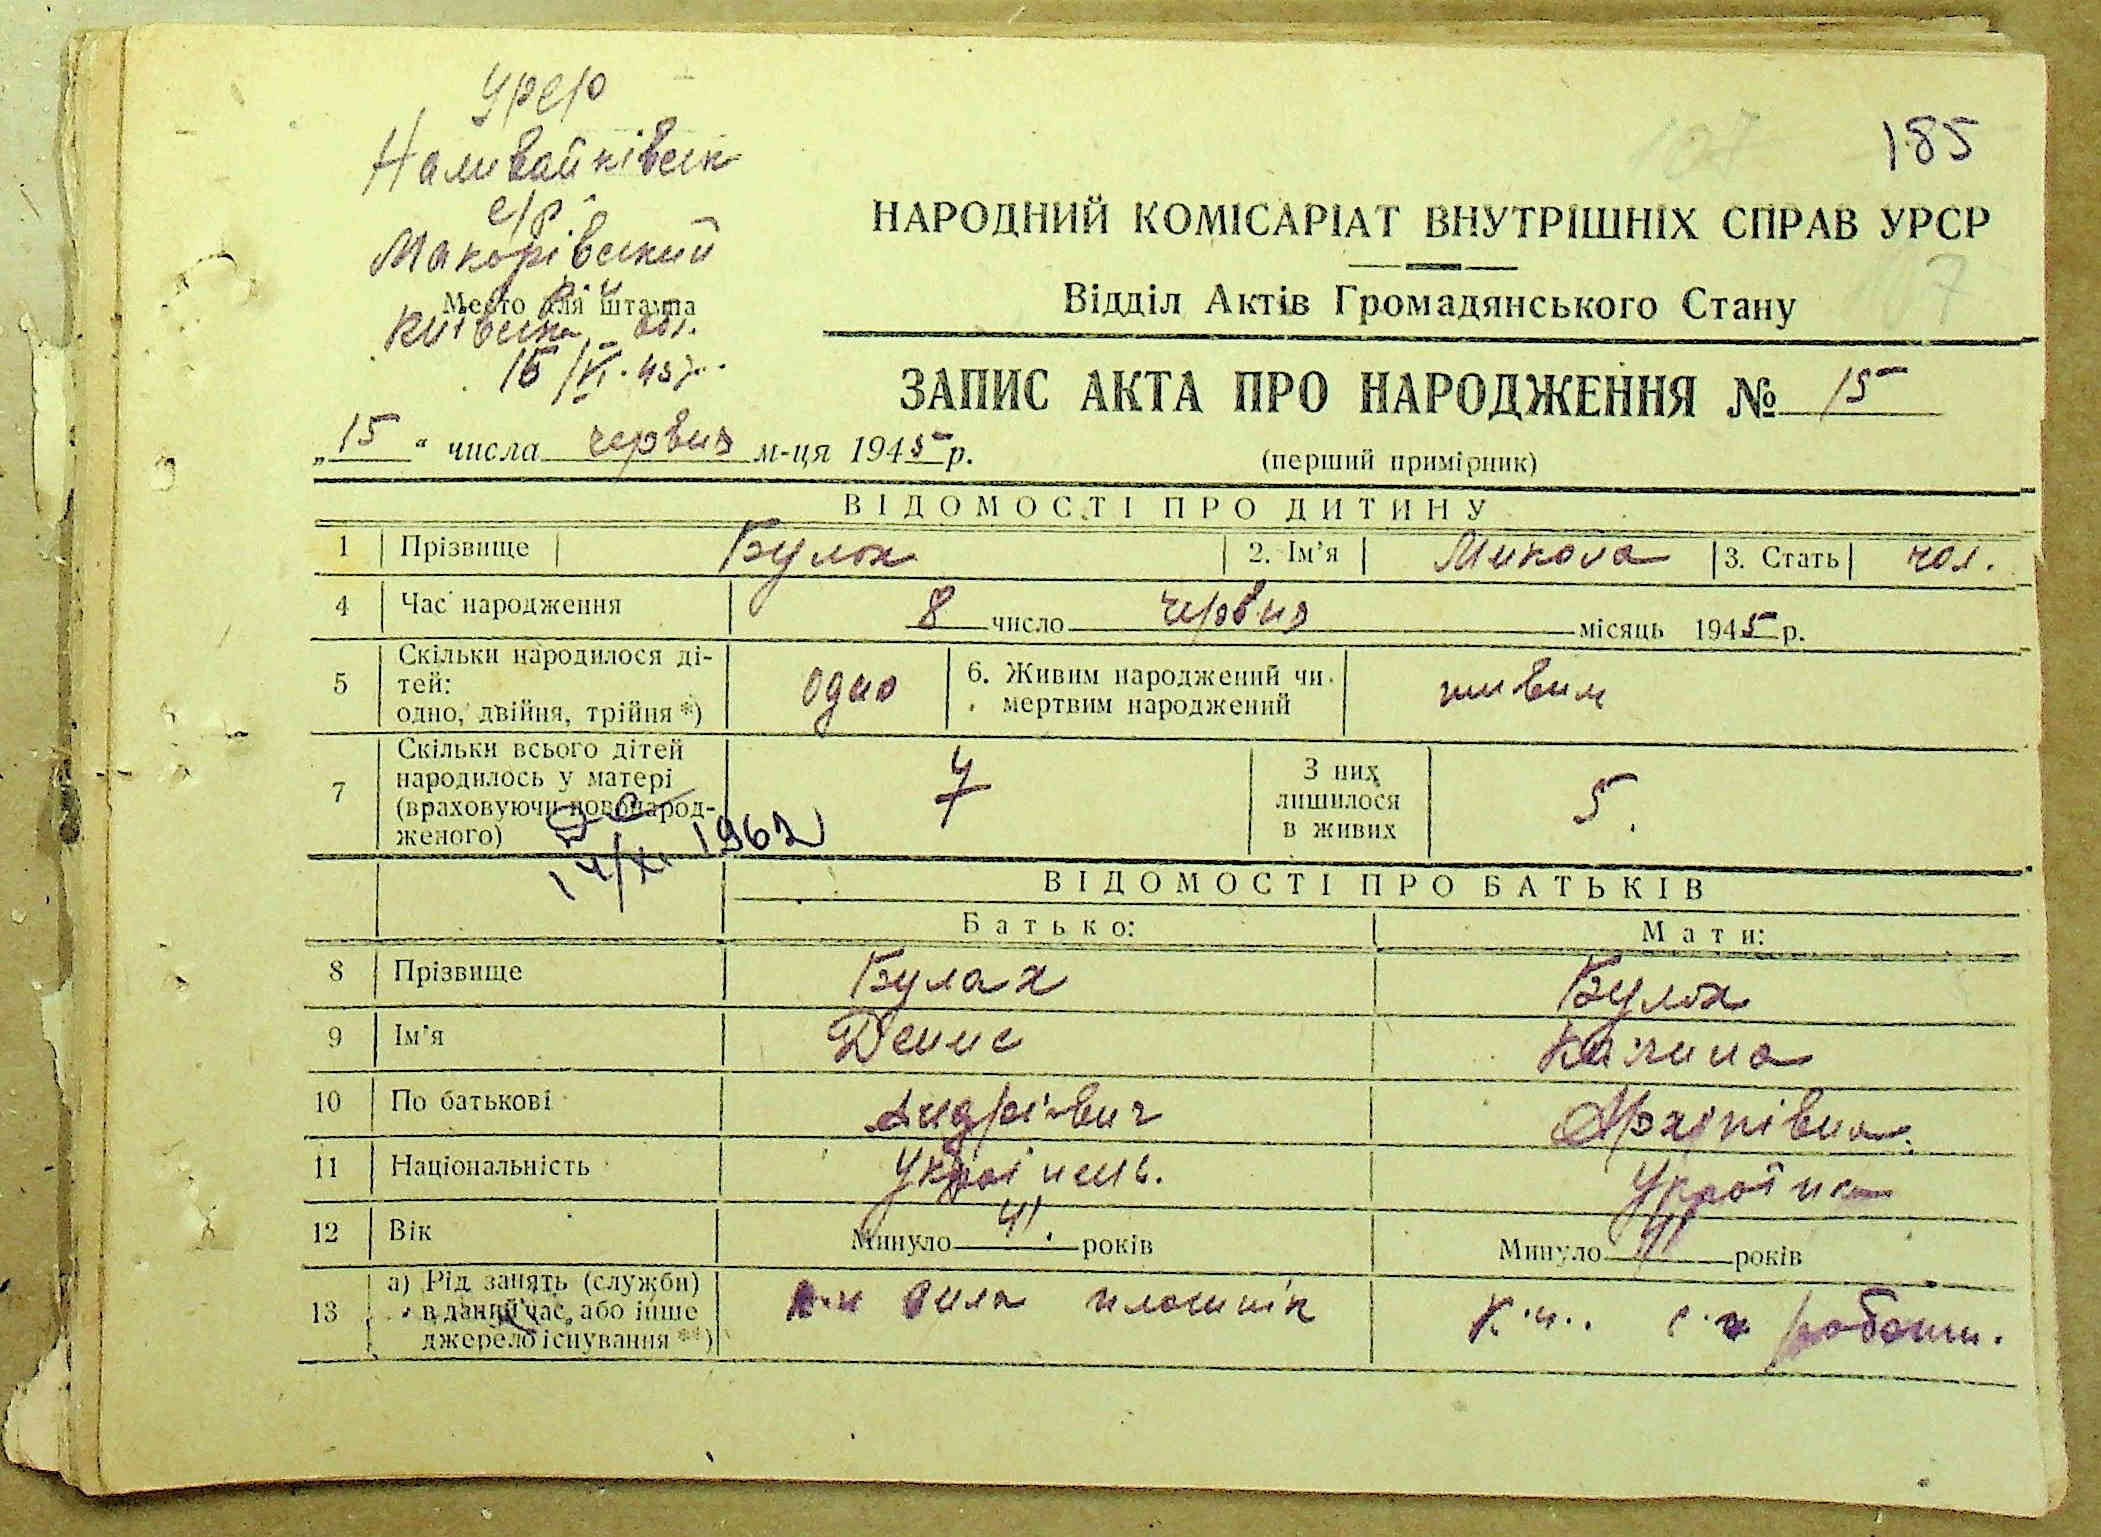 185
УРСР
Наливайківськ
с/р
Макарівський
р-н
Київськ обл.
15/VI-45 р.
Место для штампа
НАРОДНИЙ КОМІСАРІАТ ВНУТРІШНІХ СПРАВ УРСР
Відділ Актів Громадянського Стану
ЗАПИС АКТА ПРО НАРОДЖЕННЯ № 15
„15“ числа червня м-ця 1945 р.
(перший примірник)
ВІДОМОСТІ ПРО ДИТИНУ
1 Прізвище Булах 2. Ім'я Микола 3. Стать чол.
4 Час народження 8 число червня місяць 1945 р.
5 Скільки народилося ді-
тей:
одно, двійня, трійня *) одно 6. Живим народжений чи
мертвим народжений живим
7 Скільки всього дітей
народилось у матері
(враховуючи новонарод-
женого) 7 З них
лишилося
в живих 5.
14/XI. 1962
ВІДОМОСТІ ПРО БАТЬКІВ
Батько: Мати:
8 Прізвище Булах Булах
9 Ім'я Денис Килина
10 По батькові Андрієвич Архипівна
11 Національність Українець. Українка
12 Вік Минуло 41 років Минуло 41 років
13 а) Рід занять (служби)
в даний час, або інше
джерело існування **) к-п плотнік к-п. с-г роботи.